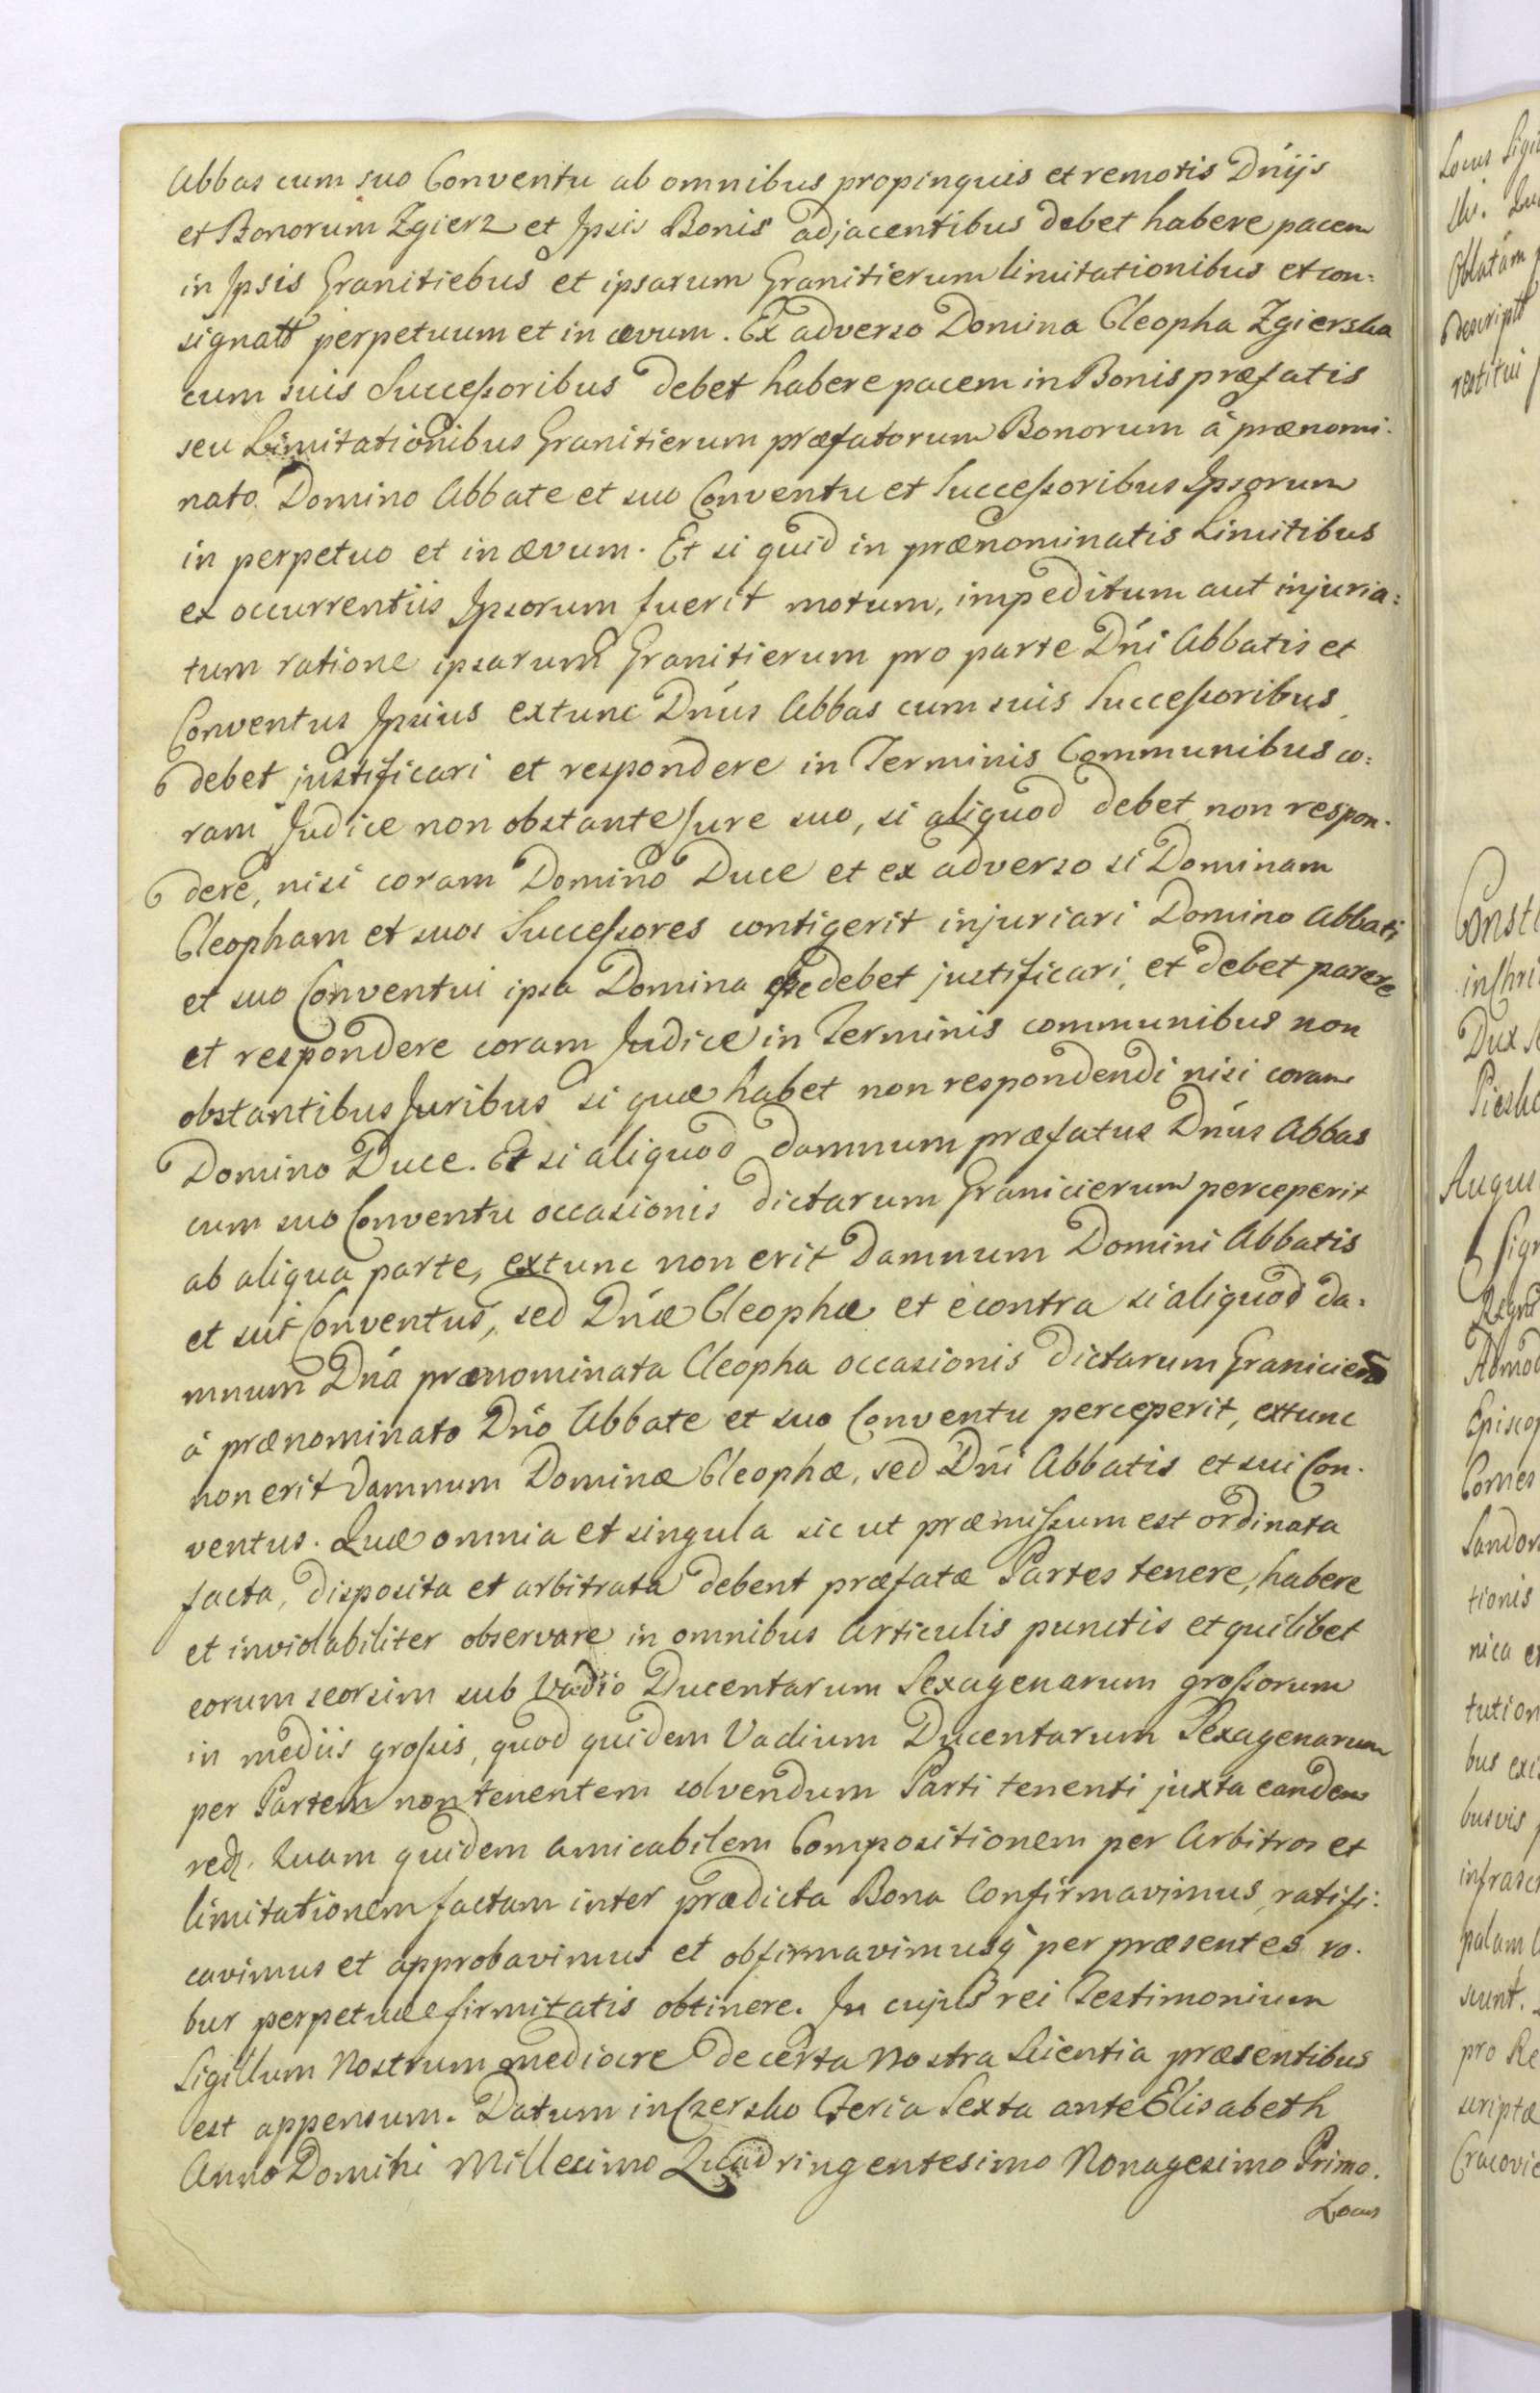 Abbas cum suo Conventu ab omnibus propinquis et remotis Dnijs
et Bonorum Zgierz et Ipsis Bonis adjacentibus debet habere pacem
in Ipsis Granitiebus et ipsarum Granitierum limitationibus et con:
signatt perpetuum et in ævum. Ex adverso Domina Cleopha Zgierska
cum suis Successoribus debet habere pacem in Bonis præfatis
seu Limitationibus Granitierum præfatorum Bonorum à prænomi-
nato Domino Abbate et suo Conventu et Successoribus Ipsorum
in perpetuo et in ævum. Et si quid in prænominatis Limitibus
ex occurrentiis Ipsorum fuerit motum, impeditum aut injuria:
tum ratione ipsarum Granitierum pro parte Dni Abbatis et
Conventus Ipsius extunc Dnus Abbas cum suis Successoribus
debet justificari et respondere in Terminis Communibus co:
ram Judice non obstante Jure suo, si aliquod debet non respon-
dere, nisi coram Domino Duce et ex adverso si Dominam
Cleopham et suos Successores contigerit injuriari Domino Abbati
et suo Conventui ipsa Domina debet justificari, et debet parere
et respondere coram Judice in Terminis communibus non
obstantibus Juribus si quæ habet non respondendi nisi coram
Domino Duce. Et si aliquod damnum præfatus Dnus Abbas
cum suo Conventu occasionis dictarum Granicierum perceperit
ab aliqua parte, extunc non erit damnum Domini Abbatis
et sui Conventus, sed Dnæ Cleophæ et econtra si aliquod da-
mnum Dna prænominata Cleopha occasionis dictarum Granicierum
à prænominato Dno Abbate et suo Conventu perceperit, extunc
non erit damnum Dominæ Cleophæ, sed Dni Abbatis et sui Con-
ventus. Quæ omnia et singula sic ut præmissum est ordinata
facta, disposita et arbitrata debent præfatæ Partes tenere, habere
et inviolabiliter observare in omnibus Articulis punctis et quilibet
eorum seorsim sub Vadio Ducentarum Sexagenarum grossorum
in mediis grossis, quod quidem Vadium Ducentarum Sexagenarum
per Partem non tenentem solvendum Parti tenenti juxta eandem
Quam quidem amicabilem Compositionem per Arbitros et
limitationem factam inter prædicta Bona Confirmavimus, ratifi:
cavimus et approbavimus et obfirmavimusq per præsentes ro-
bur perpetuæ firmitatis obtinere. In cujus rei Testimonium
Sigillum Nostrum mediocre de certa Nostra Scientia præsentibus
est appensum. Datum in Czersko Feria Sexta ante Elisabeth
Anno Domini Millesimo Quadringentesimo Nonagesimo Primo.
Locus